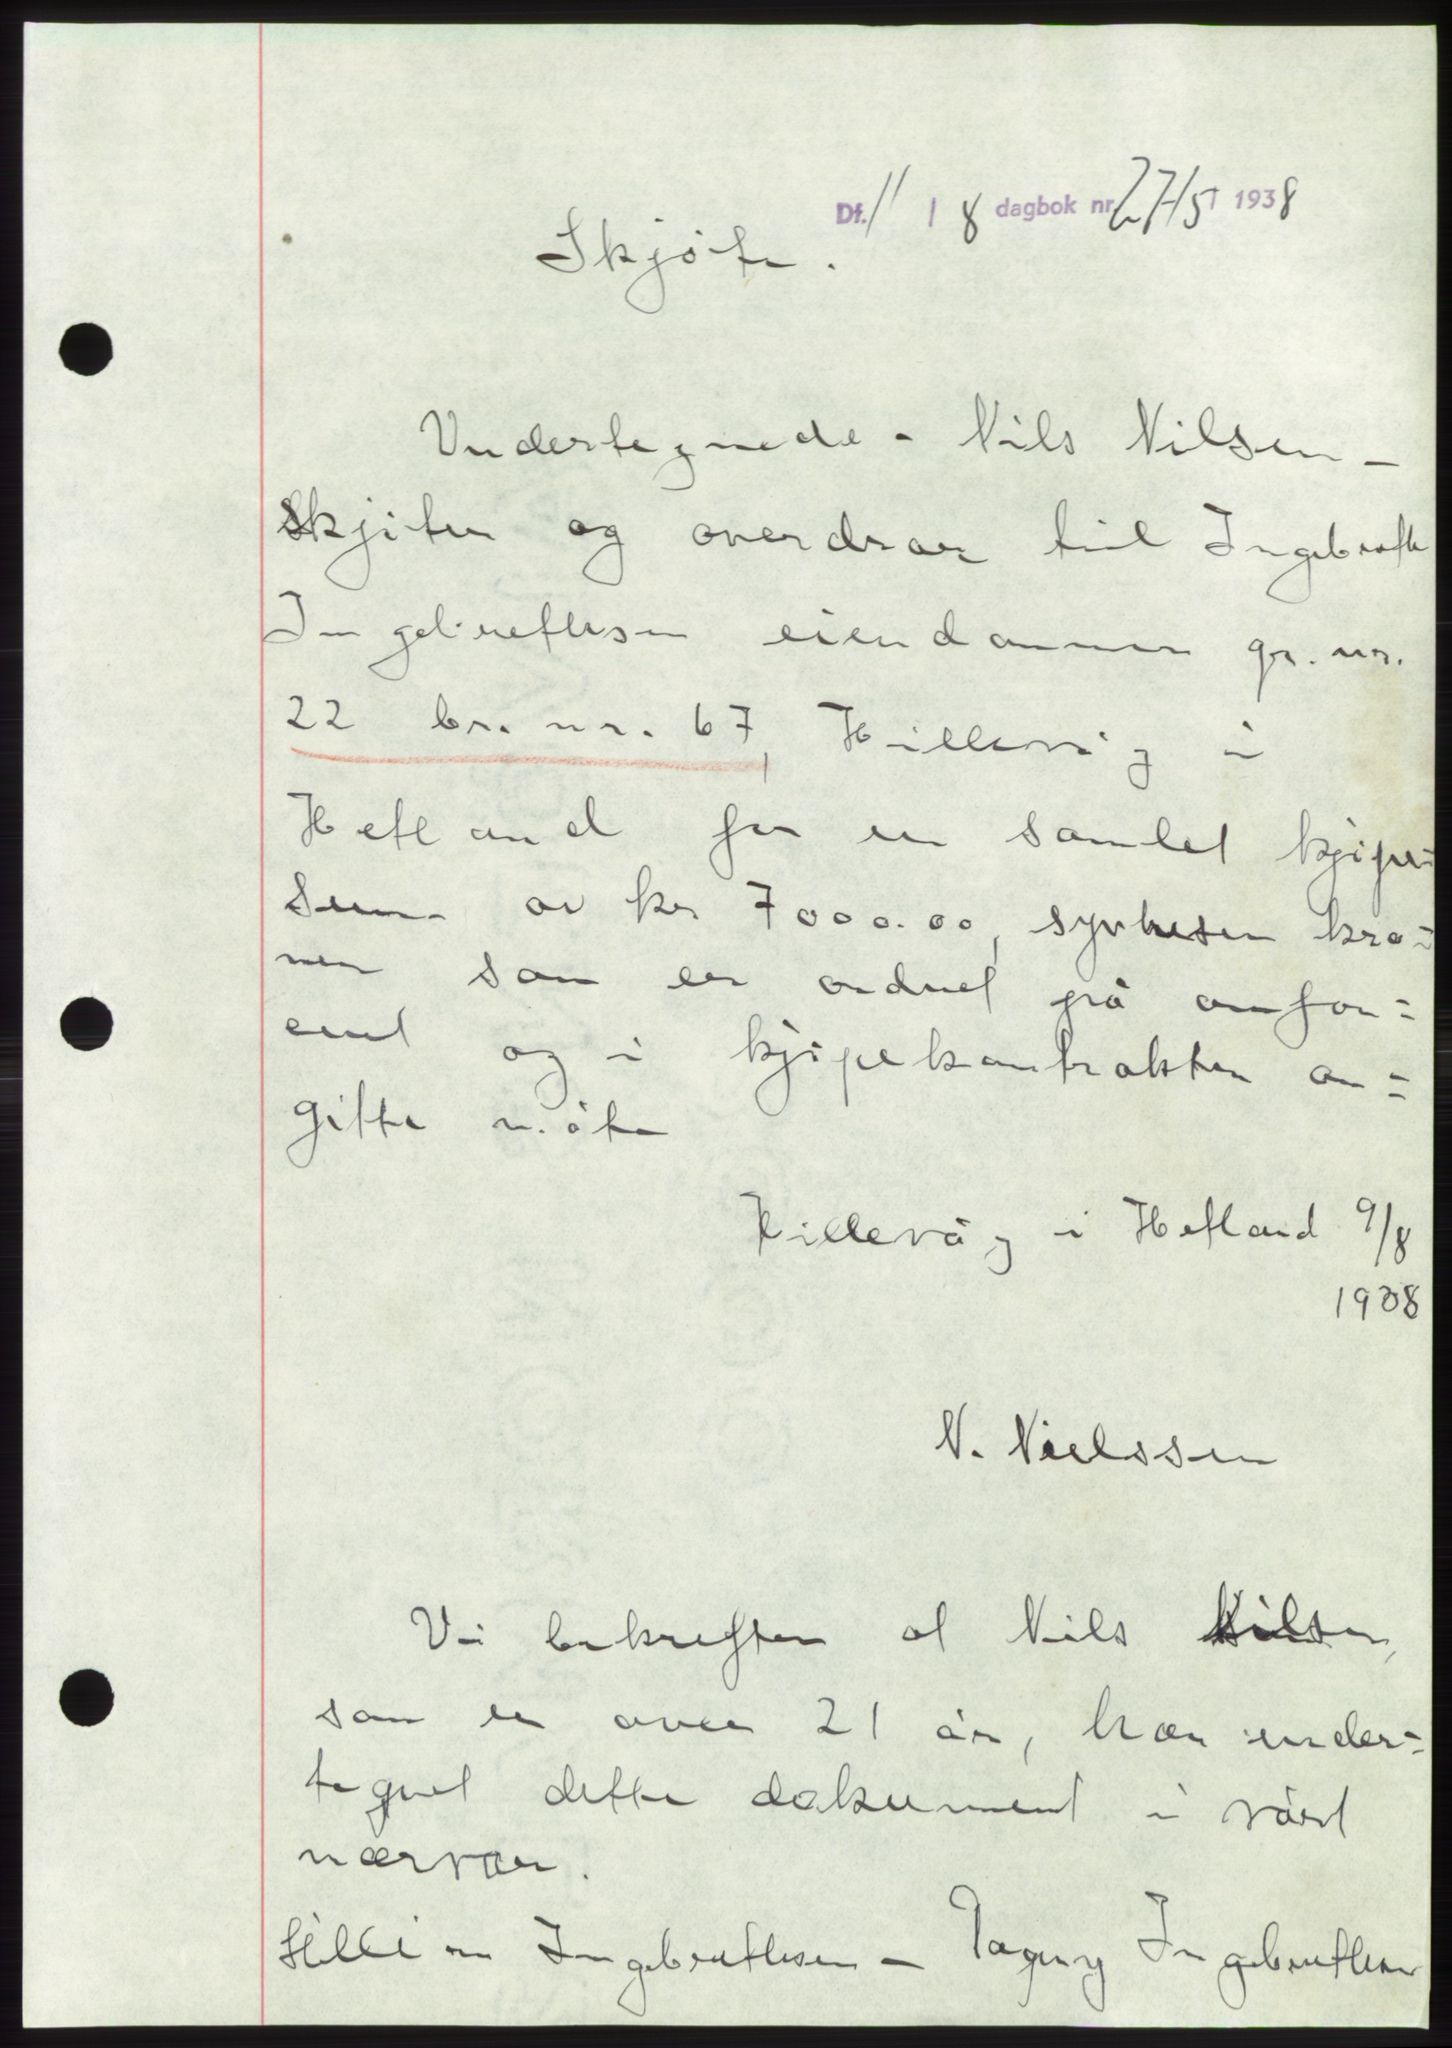 Df. 11 / 8 dagbok nr 2715 1938
Skjöte.
Undertegnede - Nils Nilsen -
Skjöter og overdrar til Ingebreth
Ingebrethsen eiendommen gr. nr.
22 br. nr. 67, Hillevåg i
Hetland for en samlet kjöpe=
sum av kr 7000.00, syvtusen kro=
ner som er ordnet på omfor=
ent og i kjöpekontrakten an=
gitte måte
Hillevåg i Hetland 9/8
1938
N. Nielssen
Vi bekrefter at Nils Nilsen,
som er over 21 år, har under=
tegnet dette dokument i vårt
nærvær.
Ingebrethsen - Dagny Ingebrethsen